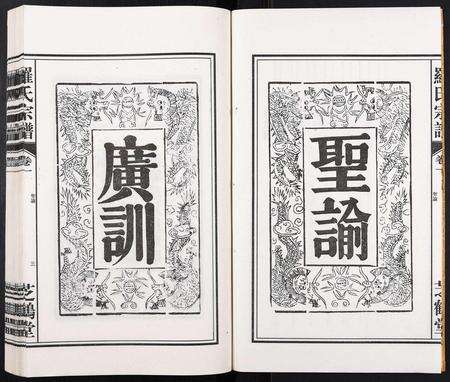 聖諭
廣訓
羅氏宗譜
卷
聖諭
芝鶴堂
羅氏宗譜
卷
聖諭
三
芝鶴堂